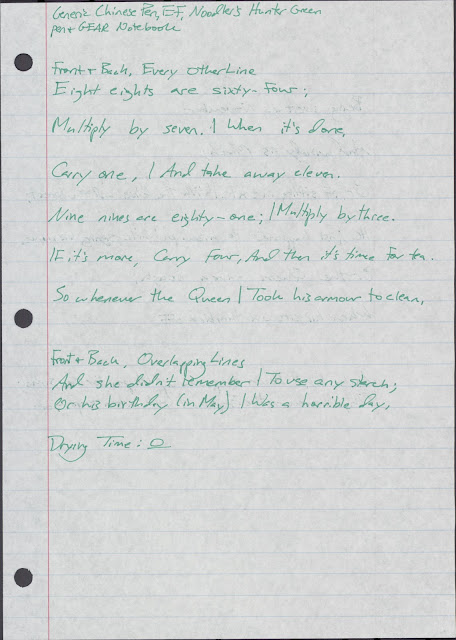 Generic Chinese Pen, EF, Noodler's Hunter Green
pen + GEAR Notebook
Front + Back, Every Other Line
Eight eights are sixty-four;
Multiply by seven. | When it's done,
Carry one, | And take away eleven.
Nine nines are eighty-one; | Multiply by three.
If it's more, Carry four, And then it's time for tea.
So whenever the Queen | Took his armour to clean,
Front + Back, Overlapping Lines
And she didn't remember | To use any starch;
Or his birthday (in May) | Was a horrible day,
Drying Time: 0